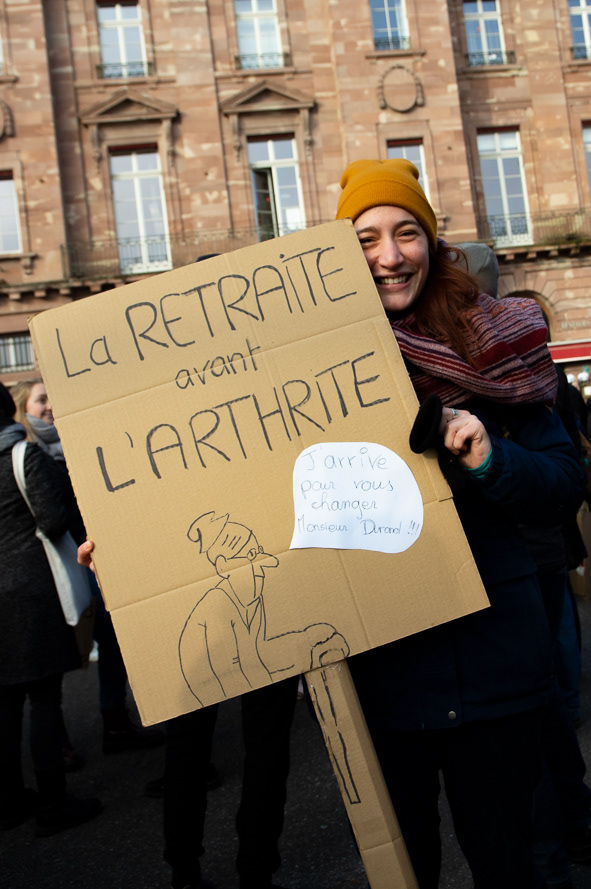 La RETRAITE
avant
L'ARTHRITE
J'arrive
pour vous
changer
Monsieur Durand !!!